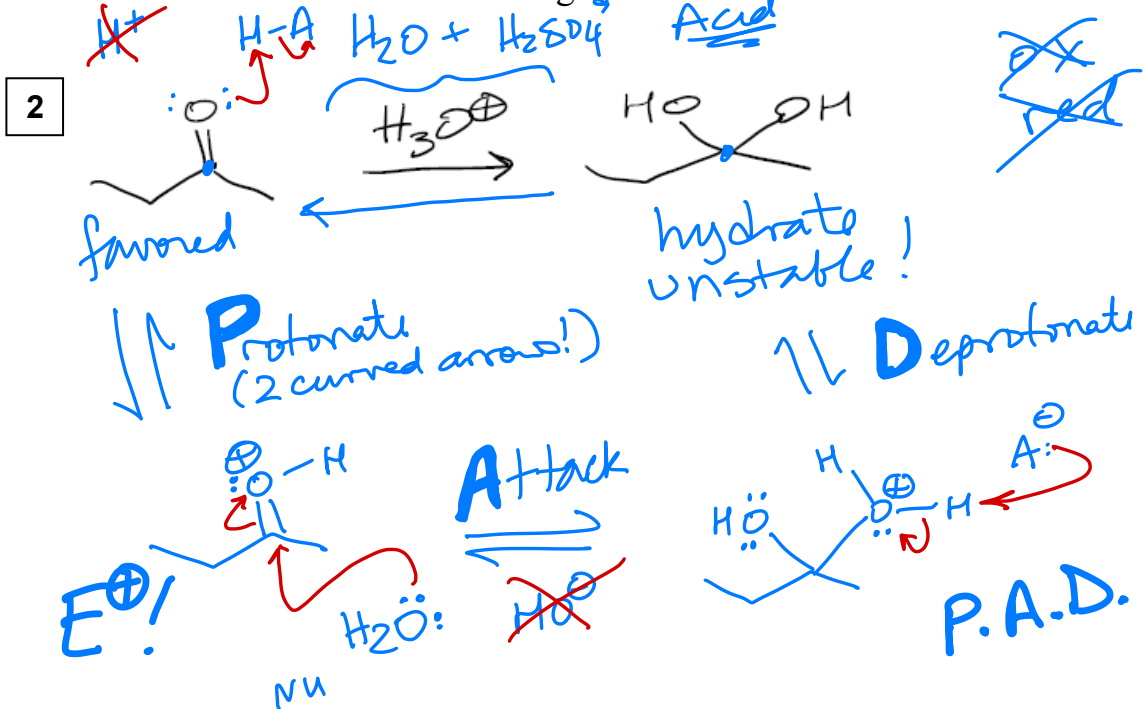 H⁺ H-A H₂O + H₂SO₄ Acid
ox
red
2
:O: H₃O⊕ HO OH
favored
hydrate
unstable!
Protonate
(2 curved arrows!)
Deprotonate
⊕
:O-H
Attack
E⊕!
H₂Ö:
HO⊖
NU
HÖ H O⊕-H A:⊖
P.A.D.